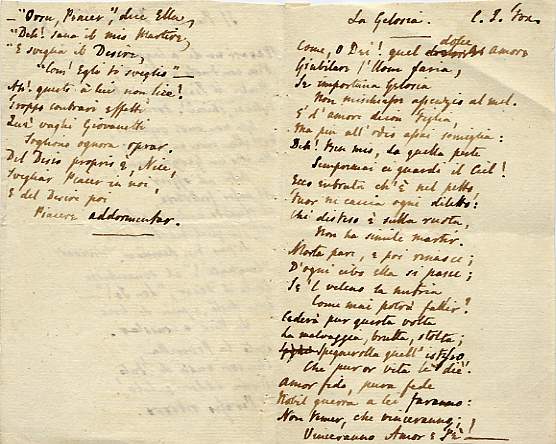 —"Orsù, Piacer," dice Ella,
"Deh! sana il mio Martire,
"E sveglia il Desire,
"Com' Egli ti sveglio"—
Ah! questo à lui non lice!
Troppo contrari effetti
Quì vaghi Giovanetti
Sogliono ognora oprar.
Del Desio proprio è, Nice,
Svegliar Piacer in noi;
E del Desire poi
Piacere addormentar.
La Gelosia. C. J. Fox
Come, O Dei! quel dolce Amore
Giubilare l'Uom faria,
Se importuna Gelosia
Non mischiasse assenzio al mel.
E' d'amore dicon figlia,
Ma più all' odio assai somiglia:
Deh! Ben mio, da quella peste
Sempremai ci guardi il Ciel!
Ecco entrata ch' è nel petto
Fuor ne caccia ogni diletto:
Chi disteso è sulla ruota,
Non ha simile martir.
Morta pare, e poi rinasce;
D'ogni cibo ella si pasce;
Se 'l veleno la nutria
Come mai potrà fallir?
Cederà pur questa volta
La malvaggia, brutta, stolta;
Spegnerolla quell' istesso
Che pur or vita le diè.
Amor fido, pura fede
Nobil guerra a lei faranno:
Non temer, che vinceranno;
Vinceranno Amor! e Fè!—